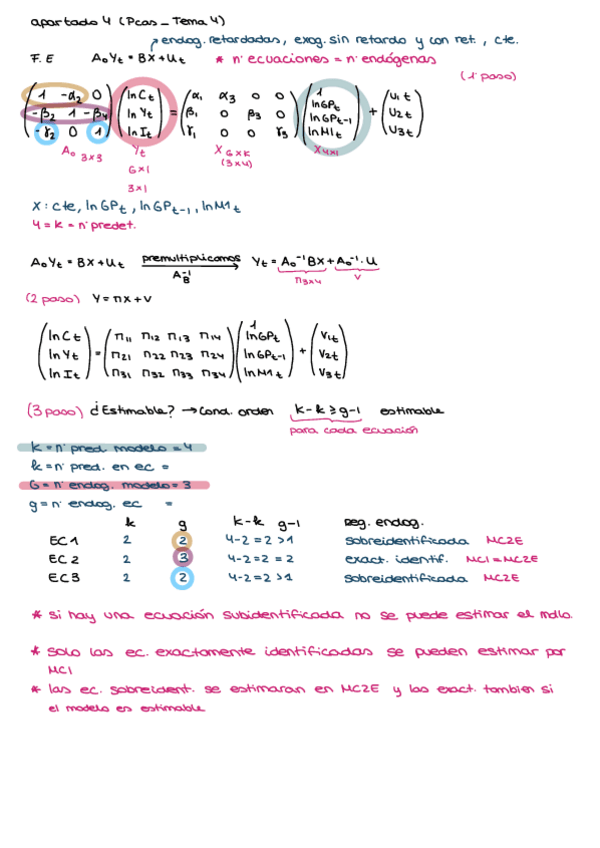 apartado 4 (Pcas_Tema 4)
endog. retardadas, exog. sin retardo y con ret., cte.
F.E A₀Yt = BX + Ut * nº ecuaciones = nº endógenas
(1º paso)
( 1 -α₂ 0 ) ( ln Ct ) = ( α₁ α₃ 0 0 ) ( 1 ) + ( U1t )
( -β₂ 1 -β₄ ) ( ln Yt ) ( β₁ 0 β₃ 0 ) ( lnGPt ) ( U2t )
( lnGPt-1 )
( -γ₂ 0 1 ) ( ln It ) ( γ₁ 0 0 γ₃ ) ( lnM1t ) ( U3t )
A₀ 3x3 Yt X GxK X4x1
Gx1 (3x4)
3x1
X: cte, lnGPt, lnGPt-1, lnM1t
4 = k = nº predet.
A₀Yt = BX + Ut premultiplicamos Yt = A₀⁻¹BX + A₀⁻¹·U
A⁻¹B Π3x4 V
(2 paso) Y = ΠX + V
( ln Ct ) = ( Π11 Π12 Π13 Π14 ) ( 1 ) + ( V1t )
( lnGPt )
( ln Yt ) ( Π21 Π22 Π23 Π24 ) ( lnGPt-1 ) ( V2t )
( ln It ) ( Π31 Π32 Π33 Π34 ) ( lnM1t ) ( V3t )
(3 paso) ¿Estimable? → Cond. orden K-k ≥ g-1 estimable
para cada ecuación
K = nº pred. modelo = 4
k = nº pred. en ec =
G = nº endog. modelo = 3
g = nº endog. ec =
k g K-k g-1 Reg. endog.
EC1 2 2 4-2 = 2 > 1 sobreidentificada MC2E
EC2 2 3 4-2 = 2 = 2 exact. identif. MCI = MC2E
EC3 2 2 4-2 = 2 > 1 sobreidentificada MC2E
* si hay una ecuación subidentificada no se puede estimar el mdlo.
* solo las ec. exactamente identificadas se pueden estimar por
MCI
* las ec. sobreident. se estimaran en MC2E y las exact. tambien si
el modelo es estimable